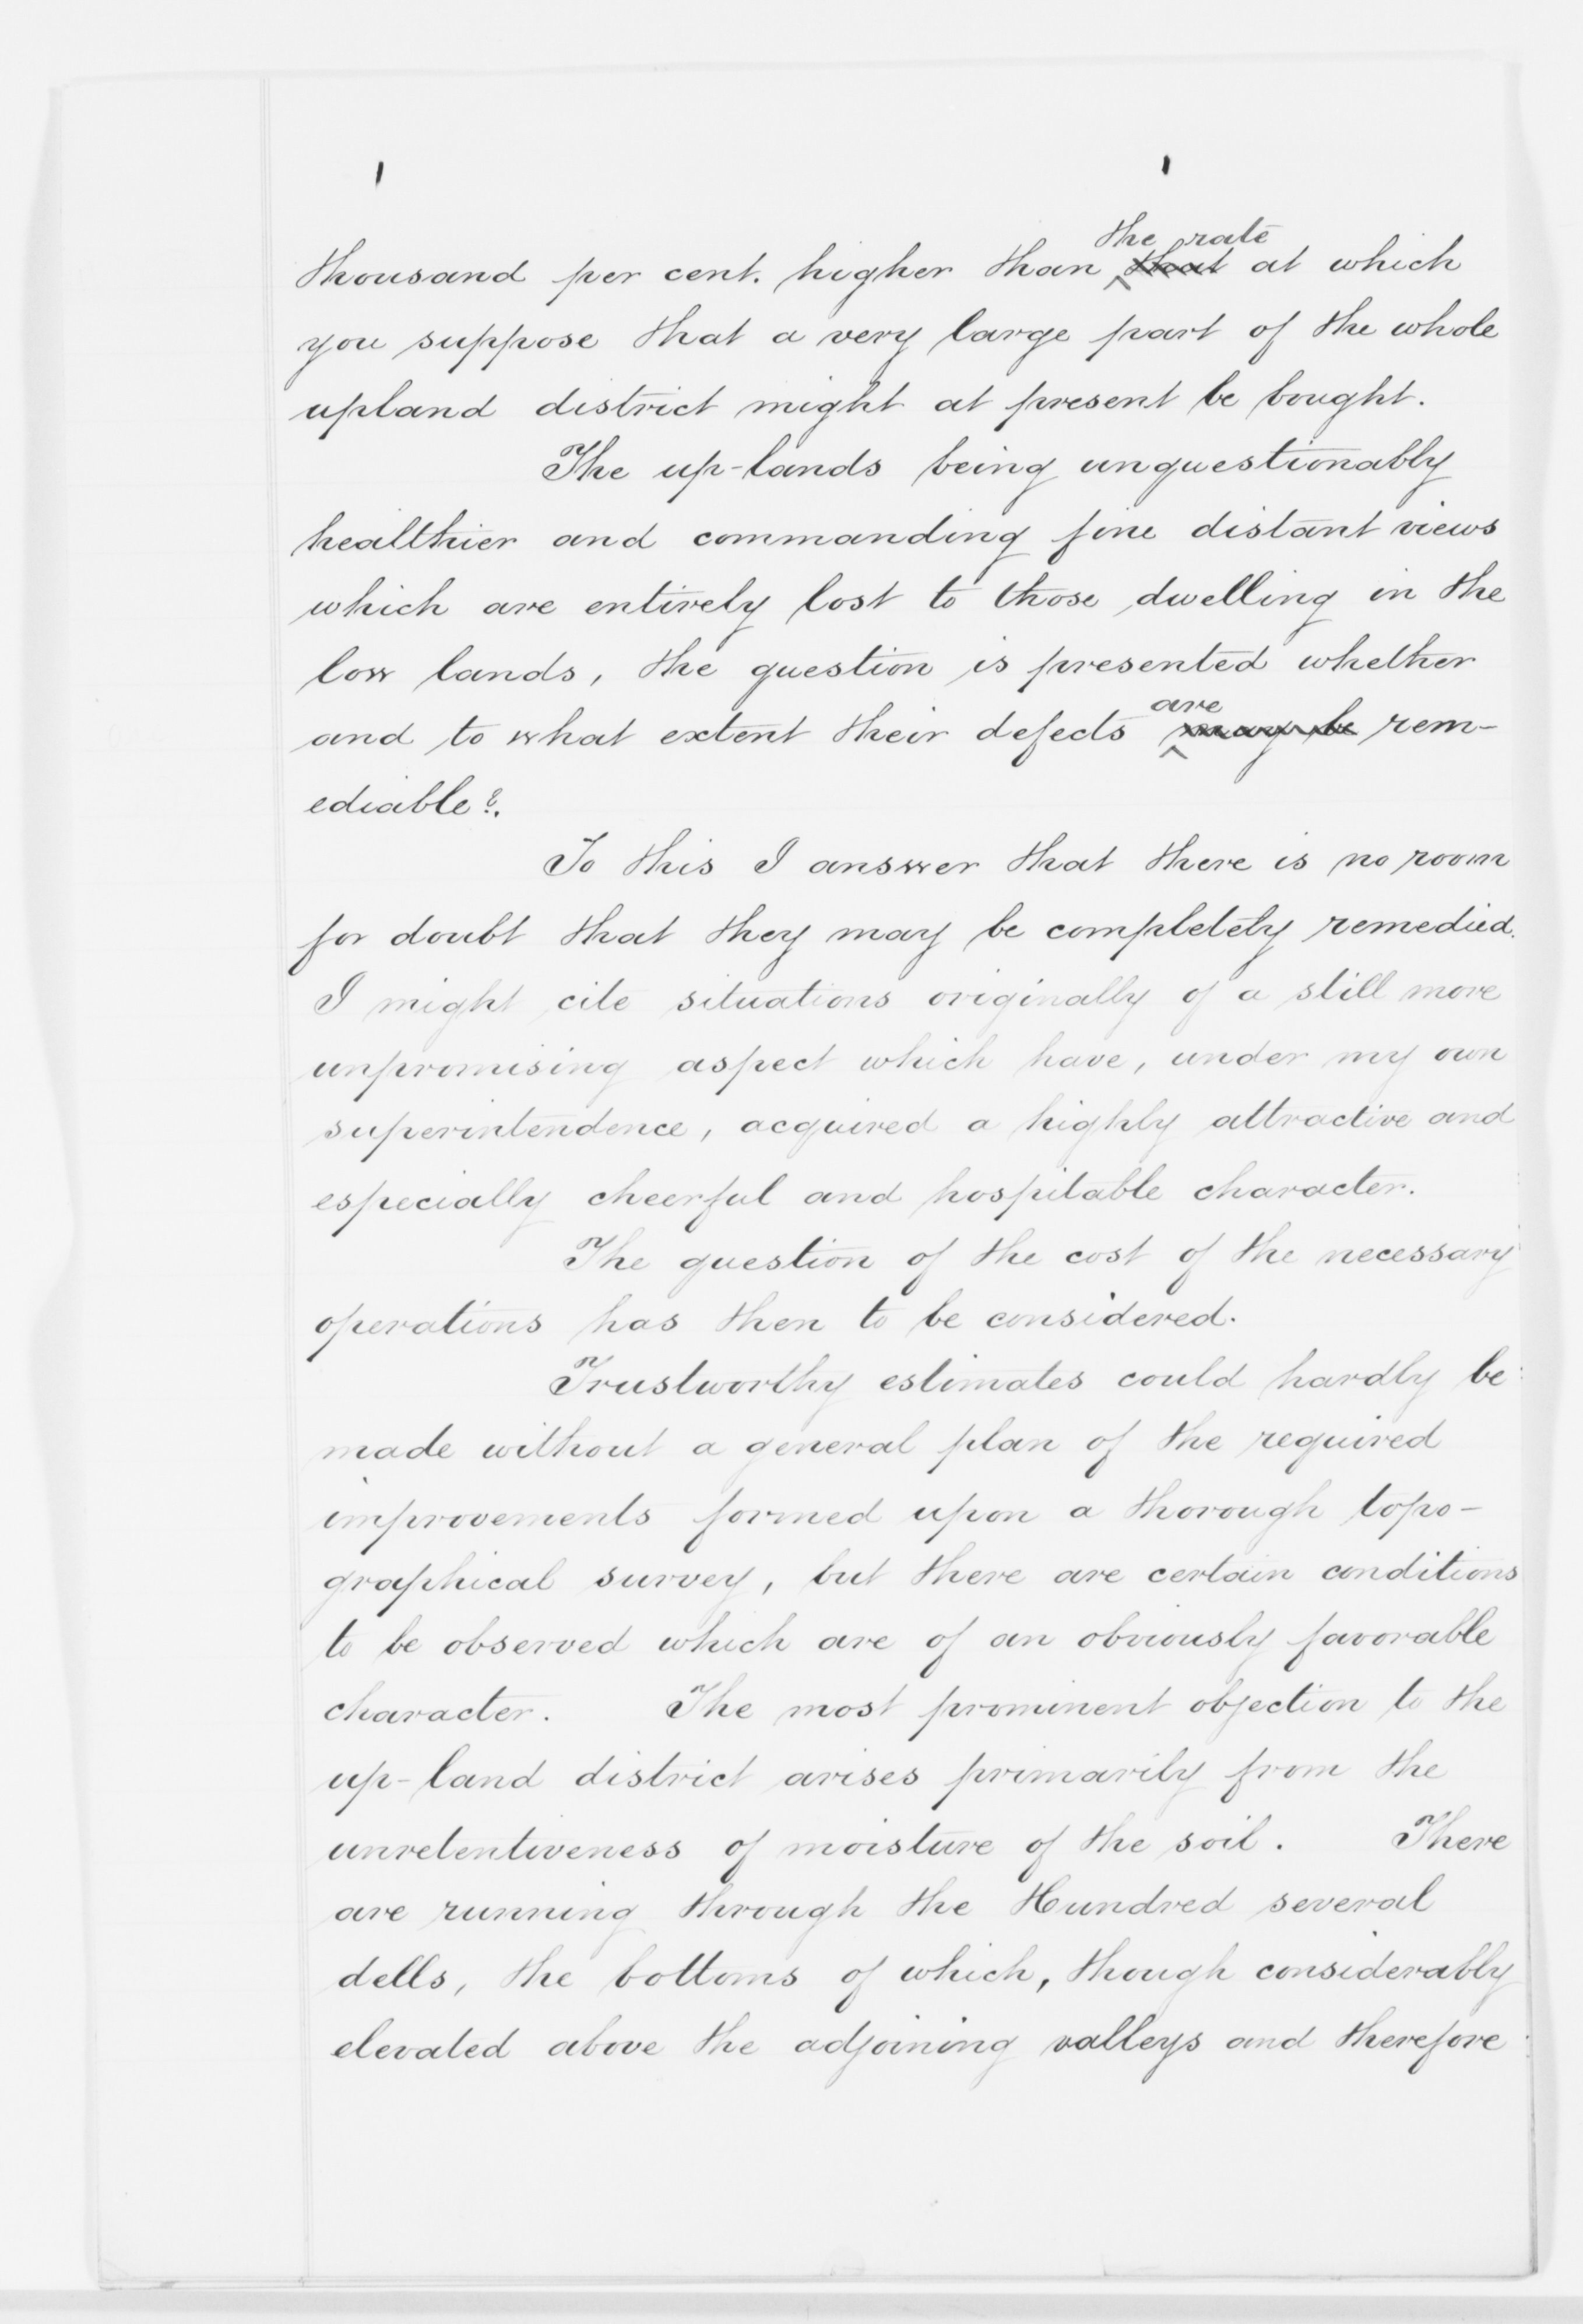 the rate
thousand per cent. higher than ^ that at which
you suppose that a very large part of the whole
upland district might at present be bought.
The up-lands being unquestionably
healthier and commanding fine distant views
which are entirely lost to those dwelling in the
low lands, the question is presented whether
are
and to what extent their defects ^ may be rem-
ediable?.
To this I answer that there is no room
for doubt that they may be completely remedied.
I might cite situations originally of a still more
unpromising aspect which have, under my own
superintendence, acquired a highly attractive and
especially cheerful and hospitable character.
The question of the cost of the necessary
operations has then to be considered.
Trustworthy estimates could hardly be
made without a general plan of the required
improvements formed upon a thorough topo-
graphical survey, but there are certain conditions
to be observed which are of an obviously favorable
character. The most prominent objection to the
up-land district arises primarily from the
unretentiveness of moisture of the soil. There
are running through the Hundred several
dells, the bottoms of which, though considerably
elevated above the adjoining valleys and therefore